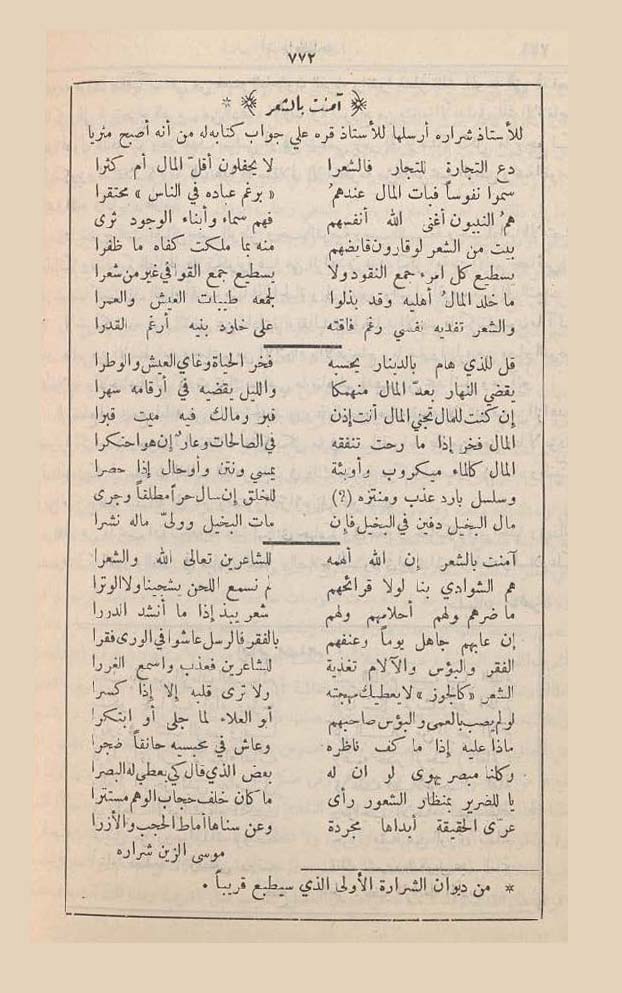 ٧٧٢
﴿ آمنت بالشعر ﴾ *
للأستاذ شراره أرسلها للأستاذ قره علي جواب كتابه له من أنه أصبح مثريا
دع التجارة للتجار فالشعرا لا يحفلون أقلّ المال أم كثرا
سمرا نفوساً فبات المال عندهمُ « برغم عباده في الناس » محتقرا
همُ النبيون أغنى الله أنفسهم فهم سماء وأبناء الوجود ثرى
بيت من الشعر لو قارون قايضهم منه بما ملكت كفاه ما ظفرا
يسطيع كل امرء جمع النقود ولا يسطيع جمع القوافي غير من شعرا
ما خلد المالُ أهليه وقد بذلوا لجمعه طيبات العيش والعمرا
والشعر تفديه نفسي رغم فاقته على خلود بنيه أرغم القدرا
قل للذي هام بالدينار يحسبه فخر الحياة وغاي العيش والوطرا
يقضي النهار بعدّ المال منهمكا والليل يقضيه في أرقامه سهرا
إن كنت للمال تجني المال أنت إذن قبر ومالك فيه ميت قبرا
المال فخر إذا ما رحت تنفقه في الصالحات وعار إن هو احتكرا
المال كالماء ميكروب وأوبئة يمسي ونتن وأوحال إذا حصرا
وسلسل بارد عذب ومنتزه (؟) للخلق إن سال حراً مطلقاً وجرى
مال البخيل دفين في البخيل فإن مات البخيل وولىّ ماله نشرا
آمنت بالشعر إن الله ألهمه للشاعرين تعالى الله والشعرا
هم الشوادي بنا لولا قرائحهم لم نسمع اللحن يشجينا ولا الوترا
ما ضرهم ولهم أحلامهم ولهم شعر يبذ إذا ما أنشد الدررا
إن عابهم جاهل يوماً وعنفهم بالفقر فالرسل عاشوا في الورى فقرا
الفقر والبؤس والآلام تغذية للشاعرين فعذب واسمع الغررا
الشعر « كالجوز » لا يعطيك مهجته ولا ترى قلبه إلا إذا كسرا
لو لم يصب بالعمى والبؤس صاحبهم أبو العلاء لما جلى أو ابتكرا
ماذا عليه إذا ما كف ناظره وعاش في محبسيه حانقاً ضجرا
وكلنا مبصر يهوى لو ان له بعض الذي قال كي يعطي له البصرا
يا للضرير بمنظار الشعور رأى ما كان خلف حجاب الوهم مستترا
عرّى الحقيقة أبداها مجردة وعن سناها أماط الحجب والأزرا
موسى الزين شراره
* من ديوان الشرارة الأولى الذي سيطبع قريباً .